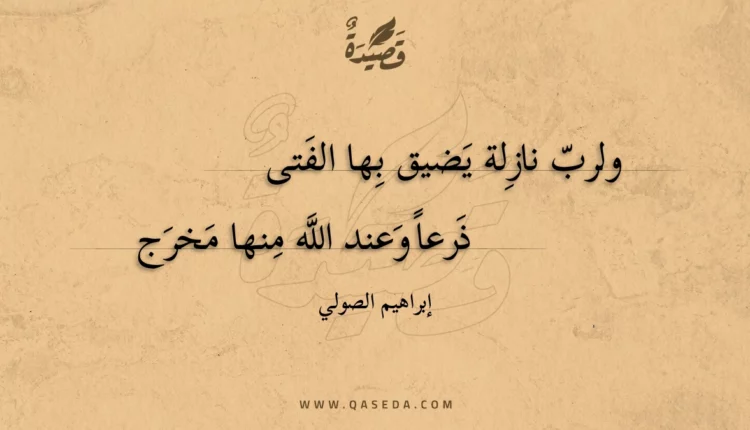 قَصِيدَةٌ
ولربّ نازِلة يَضيق بِها الفَتى
ذَرعاً وَعند اللَّه مِنها مَخرَج
إبراهيم الصولي
WWW.QASEDA.COM